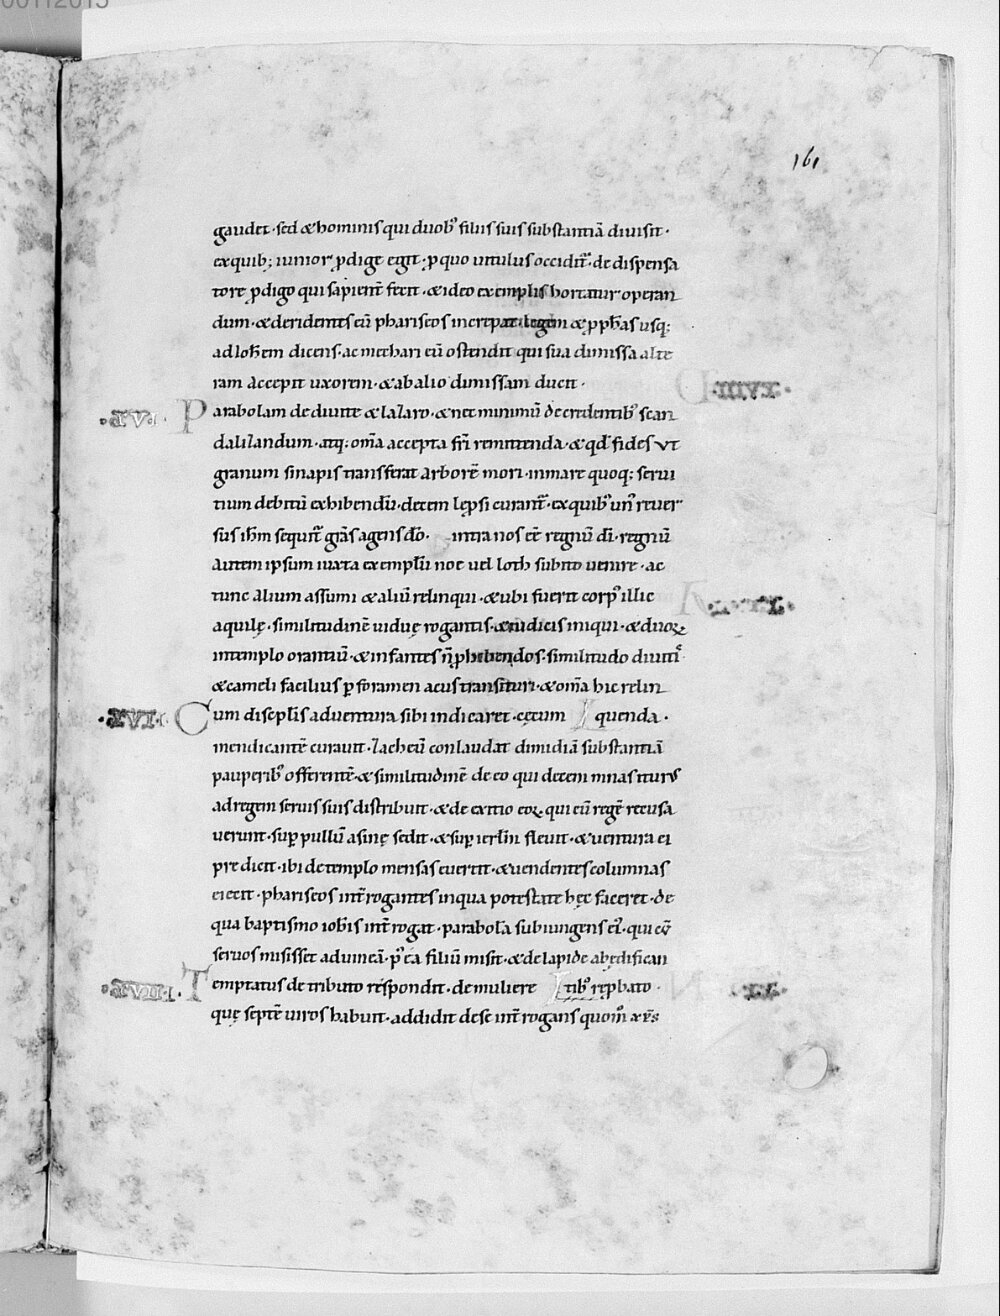 161
gaudet · sed & hominis qui duobꝰ filiis suis substantiā diuisit ·
ex quib; iunior ꝓdige egit · ꝓ quo uitulus occidit͛ · de dispensa
tore ꝓdigo qui sapient͛ fecit · & ideo exemplis hortatur operan
dum · & deridentes eū phariseos increpat · legem & ꝓph̄as usq;
ad ioh̄em dicens · ac mechari eū ostendit qui sua dimissa alte
ram accepit uxorem · & ab alio dimissam ducit ·
·XV· Parabolam de diuite & lazaro · & nec minimū de credentibꝰ scan
dalizandum · atq; om̄a accepta fr̄i remittenda · & qd̄ fides ut
granum sinapis transferat arborē mori · in mare quoq; serui
tium debitū exhibendū · decem lępsi curant͛ · ex quibꝰ unꝰ reuer
sus ih̄m sequit͛ gr̄as agens dō · intra nos eē regnū dī · regnū
autem ipsum iuxta exemplū noe uel loth subito uenire · ac
tunc alium assumi & aliū relinqui · & ubi fuerit corpꝰ illic
aquilę · similitudinē uiduę rogantis & iudicis iniqui · & duoꝝ
in templo orantiū · & infantes ñ ꝓhibendos · similitudo diuiti
& cameli facilius ꝑ foramen acus transituri · & om̄a hic relin
·XVI· Cum discipl̄is aduentura sibi indicaret · cęcum quenda ·
mendicantē curauit · zacheū conlaudat dimidiā substantiā
pauperibꝰ offerentē · & similitudinē de eo qui decem mnas iturꝰ
ad regem seruis suis distribuit · & de exitio eoꝝ qui eū regē recusa
uerunt · suꝑ pullū asinę sedit · & suꝑ ierl̄m fleuit · & uentura ei
predicit · ibi de templo mensas euertit · & uendentes columnas
eiecit · phariseos int͛rogantes in qua potestate hęc faceret · de
qua baptismo ioh̄is int͛rogat · parabolā subiungens ei · qui cū
seruos misisset ad uineā · pꝰ ea filiū misit · & de lapide ab ędifican
·XVII· Temptatus de tributo respondit · de muliere tibꝰ reprobato ·
quę septē uiros habuit · addidit de se int͛rogans quom̄ xp̄s